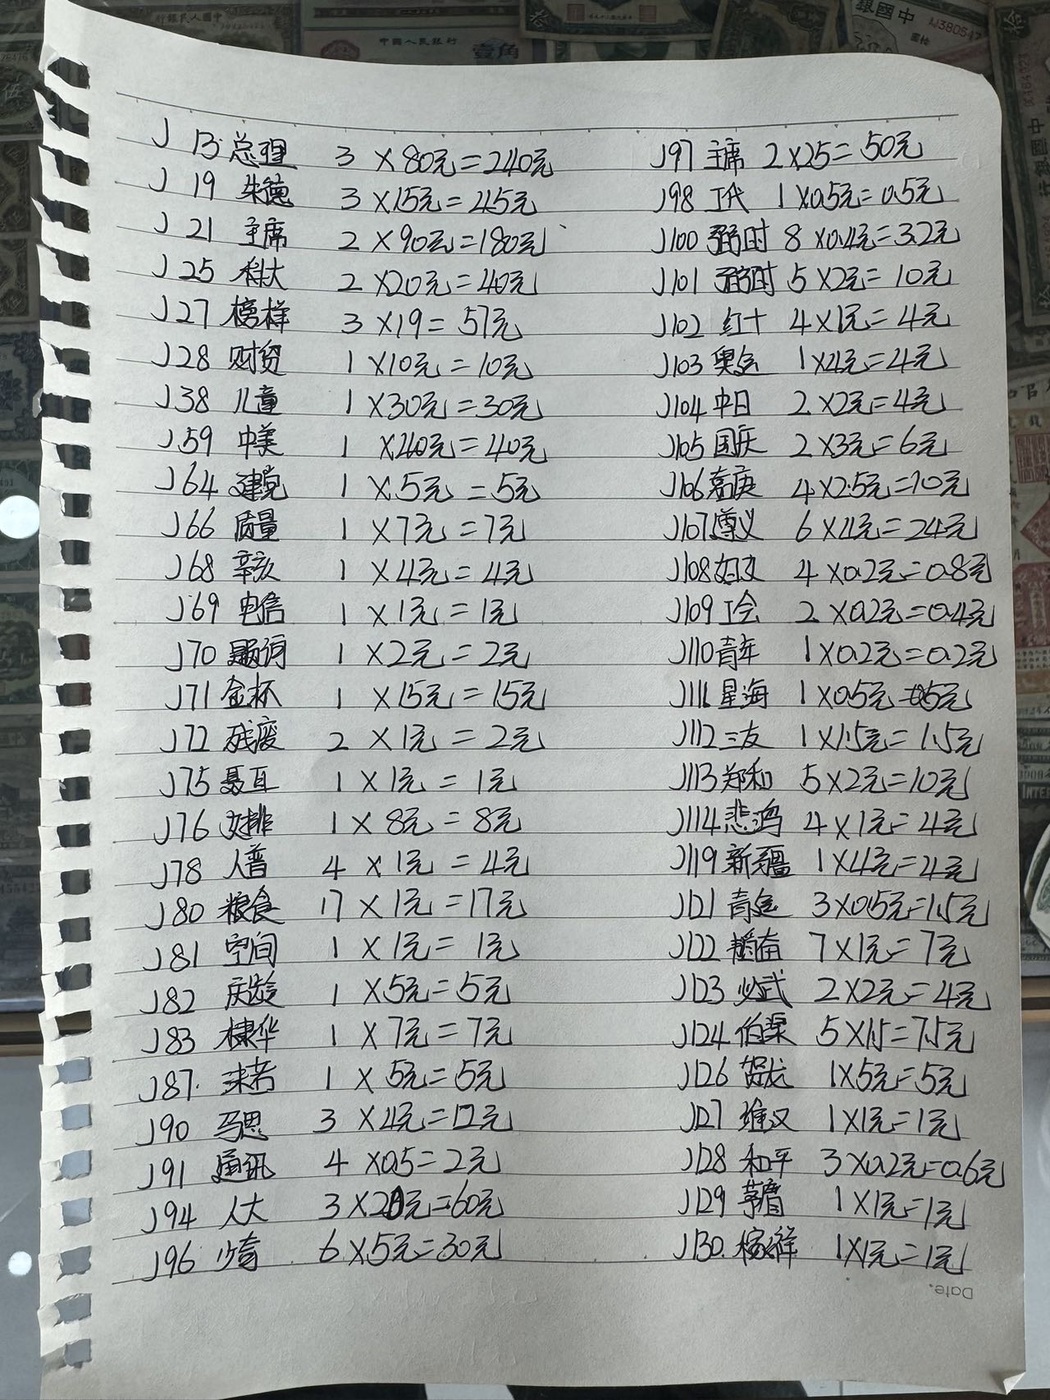 J13 总理 3×80元=240元
J19 朱德 3×15元=45元
J21 主席 2×90元=180元
J25 科大 2×20元=40元
J27 榜样 3×19=57元
J28 财贸 1×10元=10元
J38 儿童 1×30元=30元
J59 中美 1×40元=40元
J64 建党 1×5元=5元
J66 质量 1×7元=7元
J68 辛亥 1×4元=4元
J69 电信 1×1元=1元
J70 题词 1×2元=2元
J71 金杯 1×15元=15元
J72 残废 2×1元=2元
J75 聂耳 1×1元=1元
J76 女排 1×8元=8元
J78 人普 4×1元=4元
J80 粮食 17×1元=17元
J81 空间 1×1元=1元
J82 庆龄 1×5元=5元
J83 棣华 1×7元=7元
J87. 1×5元=5元
J90 马思 3×4元=12元
J91 通讯 4×0.5=2元
J94 人大 3×20元=60元
J96 少奇 6×5元=30元
J97 主席 2×25=50元
J98 工代 1×0.5元=0.5元
J100 弼时 8×0.4元=3.2元
J101 弼时 5×2元=10元
J102 红十 4×1元=4元
J103 奥运 1×4元=4元
J104 中日 2×2元=4元
J105 国庆 2×3元=6元
J106 嘉庚 4×2.5元=10元
J107 遵义 6×4元=24元
J108 妇女 4×0.2元=0.8元
J109 工会 2×0.2元=0.4元
J110 青年 1×0.2元=0.2元
J111 星海 1×0.5元=0.5元
J112 三友 1×1.5元=1.5元
J113 郑和 5×2元=10元
J114 悲鸿 4×1元=4元
J119 新疆 1×4元=4元
J121 青运 3×0.5元=1.5元
J122 韬奋 7×1元=7元
J123 必武 2×2元=4元
J124 伯渠 5×1.5=7.5元
J126 贺龙 1×5元=5元
J127 维汉 1×1元=1元
J128 和平 3×0.2元=0.6元
J129 茅盾 1×1元=1元
J130. 稼祥 1×1元=1元
Date.
中国人民銀行
壹角
中國銀